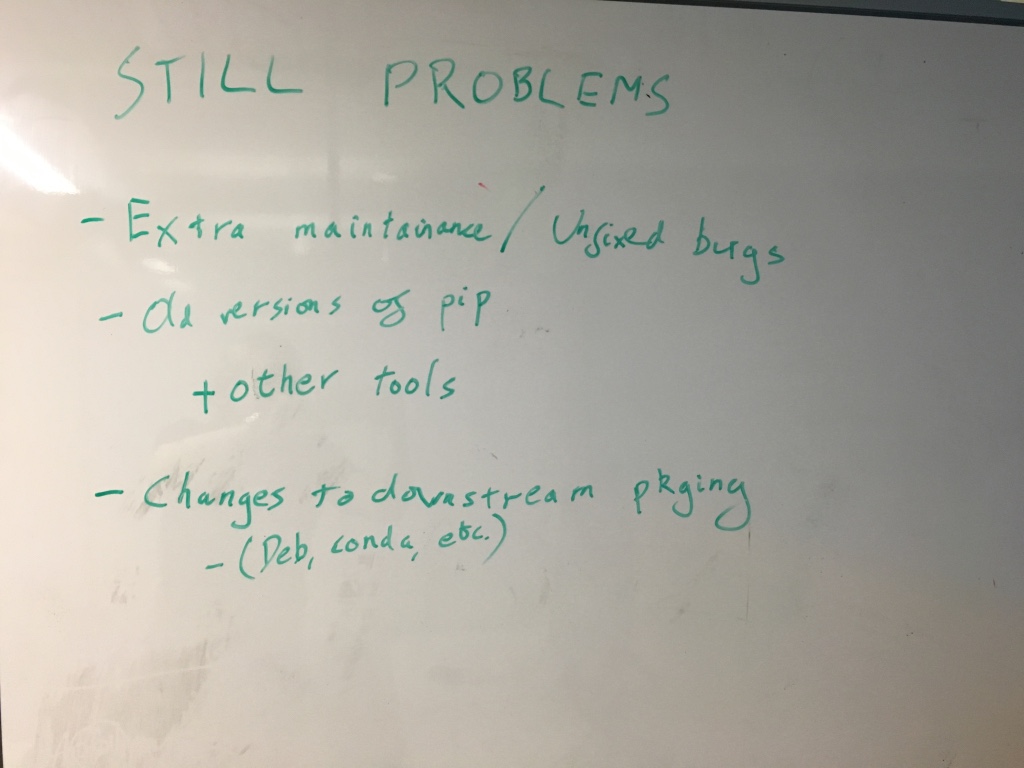 STILL PROBLEMS
- Extra maintainance / Unfixed bugs
- Old versions of pip
+ other tools
- Changes to downstream pkging
- (Deb, conda, etc.)